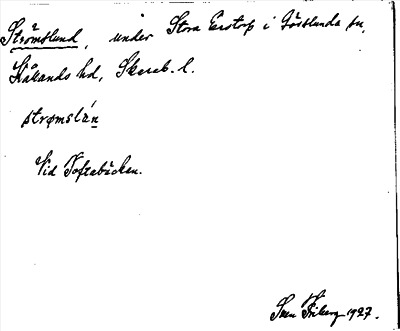 Strömslund, under Stora Enstorp i Götslunda sn,
Kållands hd, Skarab. l.
strømslá̱n
Vid Toftabäcken.
Sven Friberg 1927.